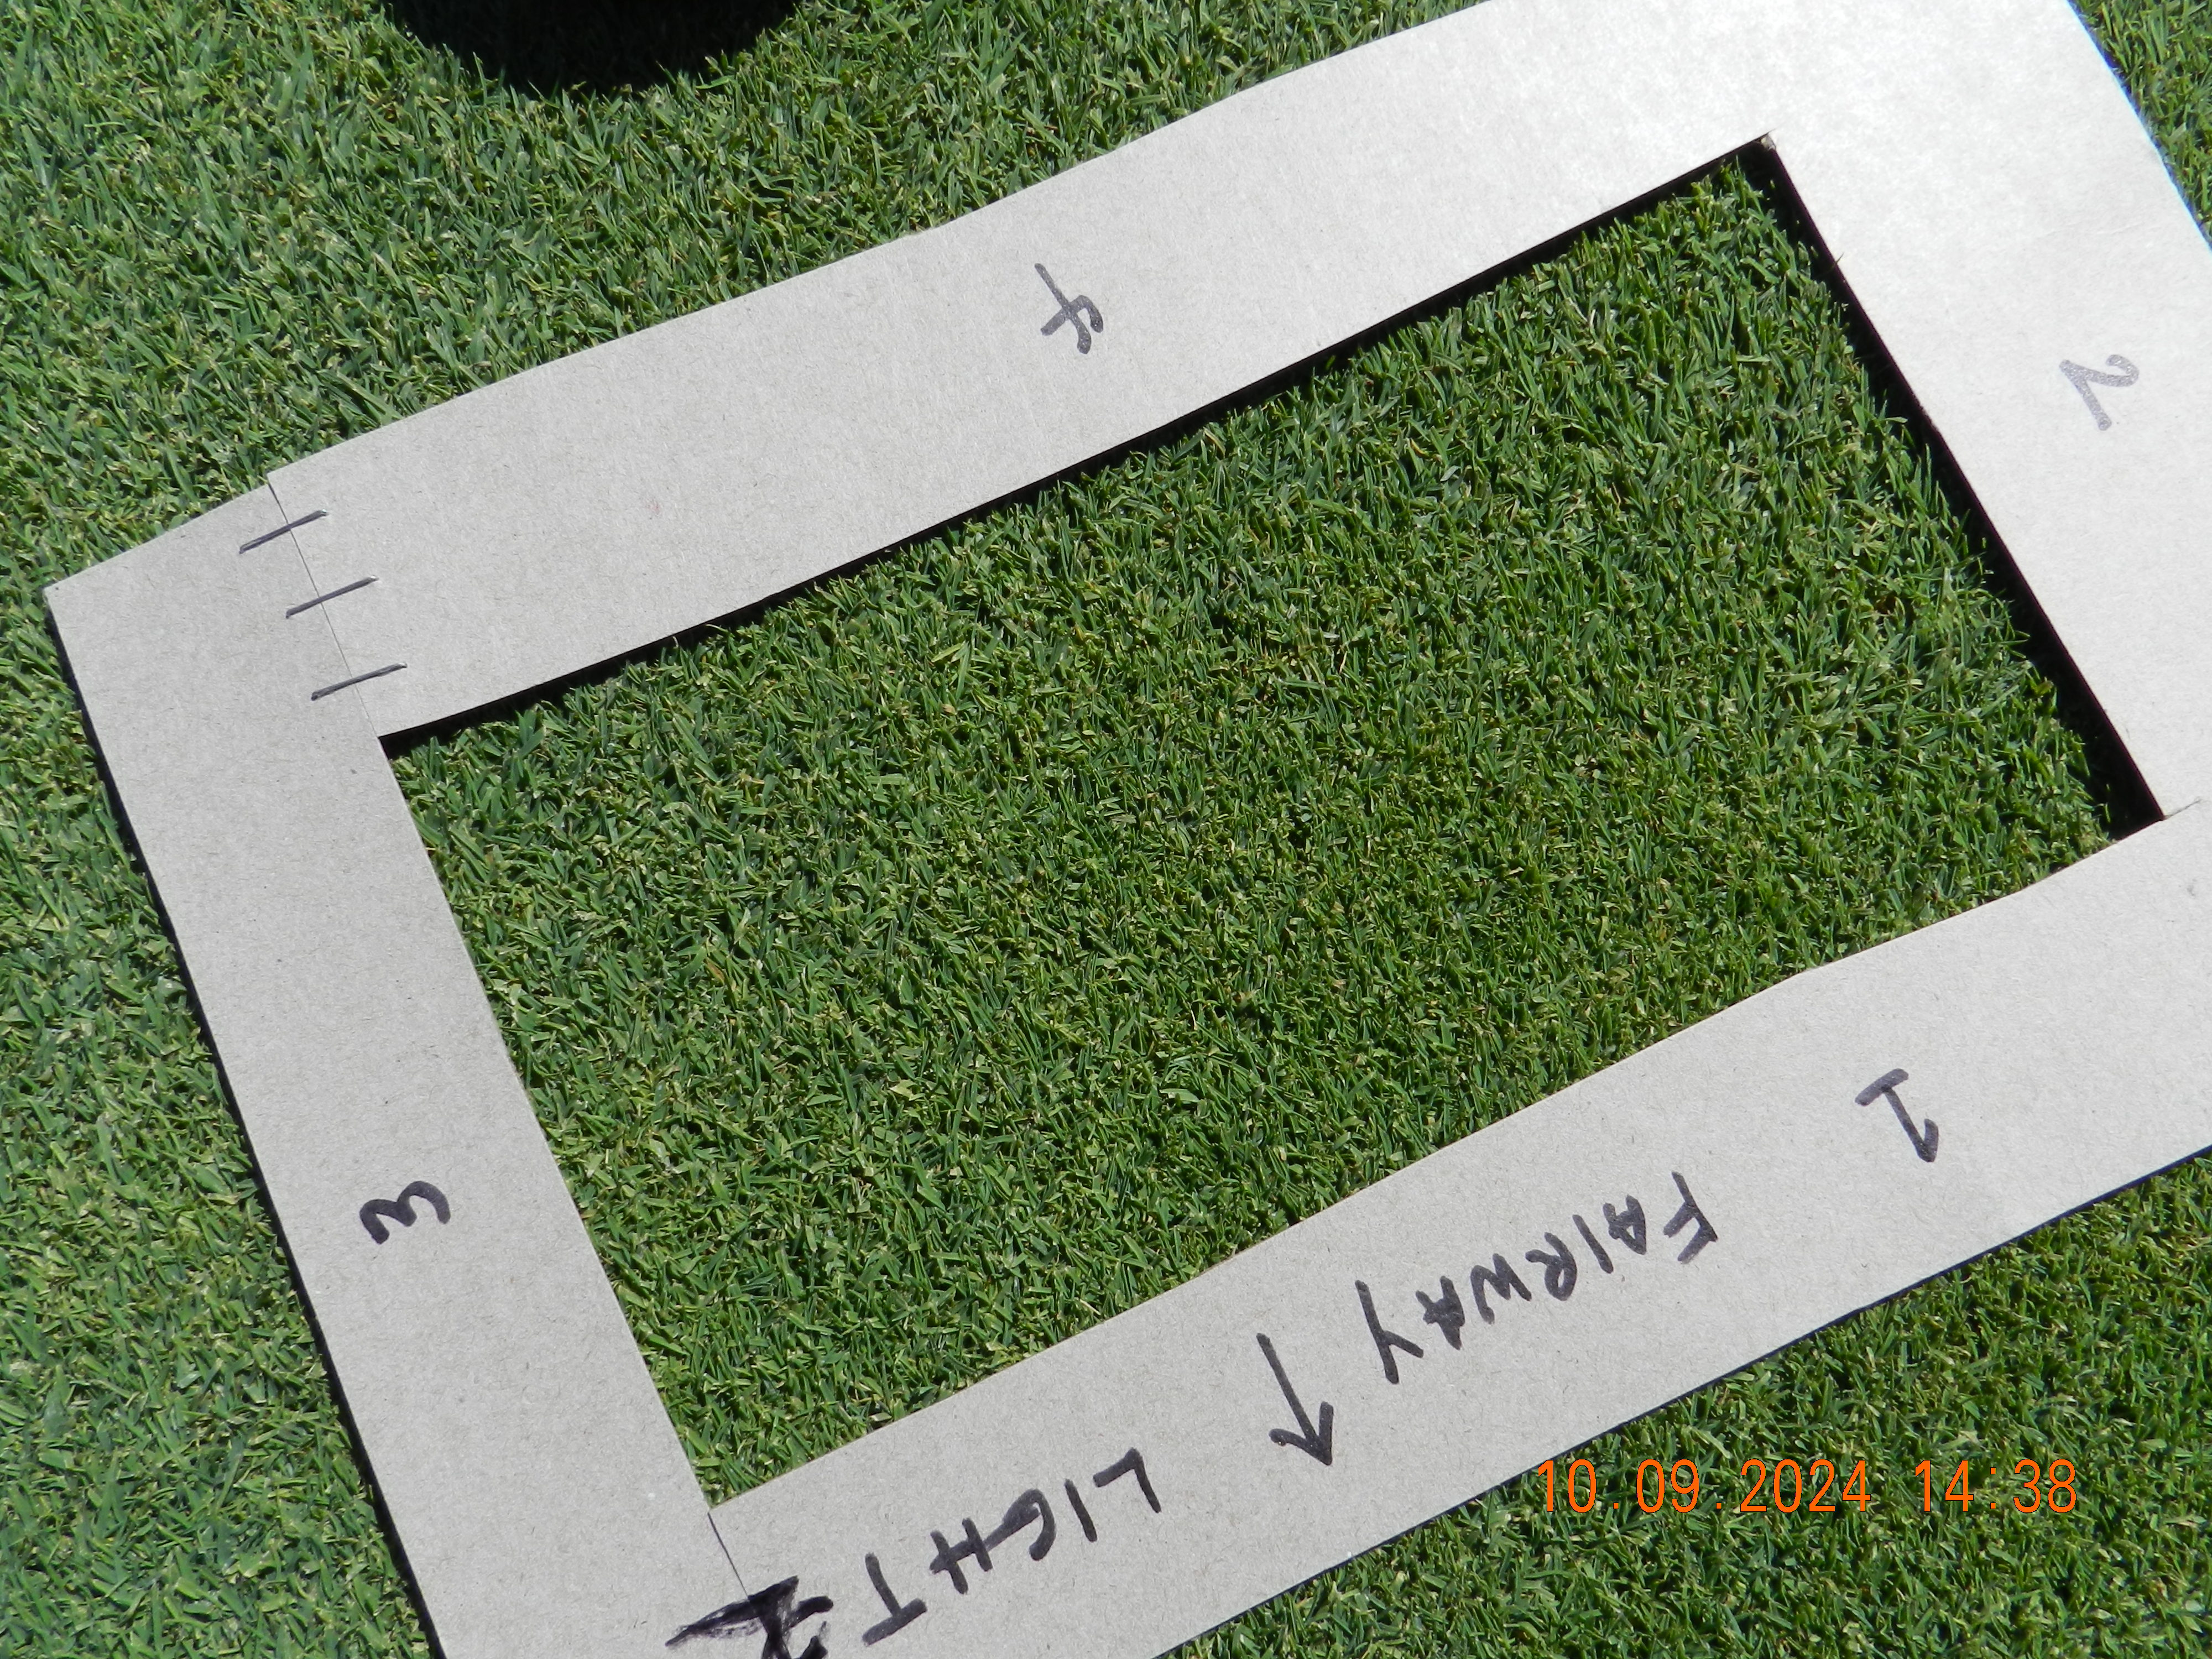 4
2
3
1
FAIRWAY → LIGHT
10.09.2024 14:38